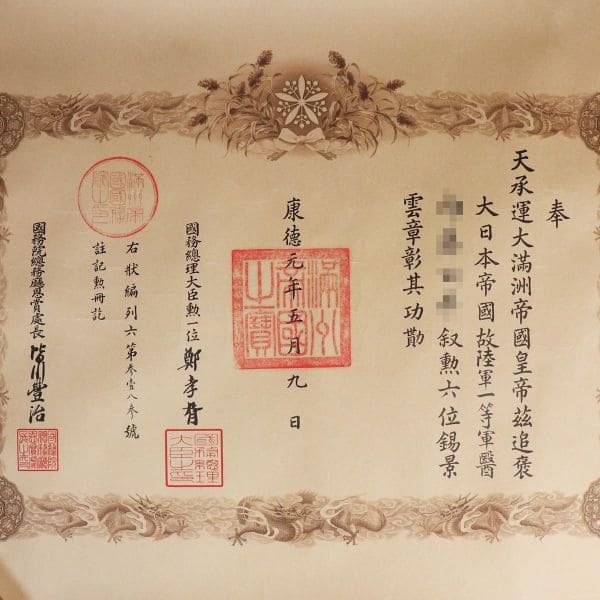 奉
天承運大滿洲帝國皇帝玆追褒
大日本帝國故陸軍一等軍醫
叙勲六位錫景
雲章彰其功勩
康德元年五月九日
滿洲帝國之寶
國務總理大臣勲一位 鄭孝胥
右狀編列六第叁壹八參號
註記勲冊訖
國務院總務廳恩賞處長 皆川豐治